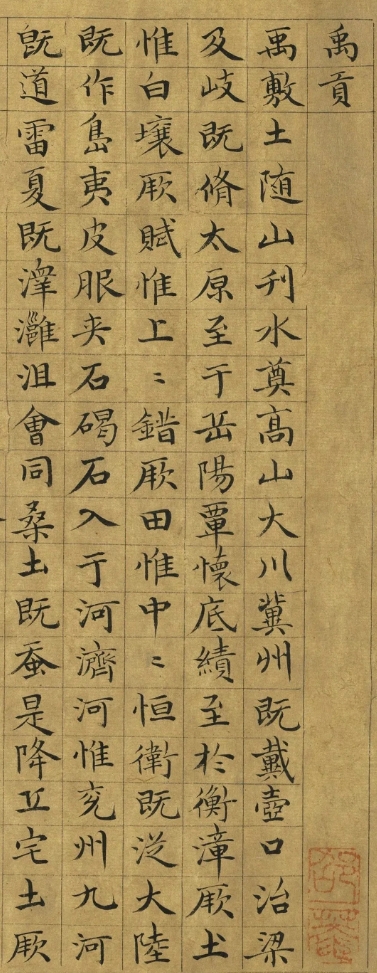 禹貢
禹敷土随山刋水奠高山大川冀州既戴壺口治梁
及岐既脩太原至于岳陽覃懷底績至於衡漳厥土
惟白壤厥賦惟上〻錯厥田惟中〻恒衛既從大陸
既作島夷皮服夹石碣石入于河濟河惟兖州九河
既道雷夏既澤灉沮會同桒土既蚕是降丘宅土厥